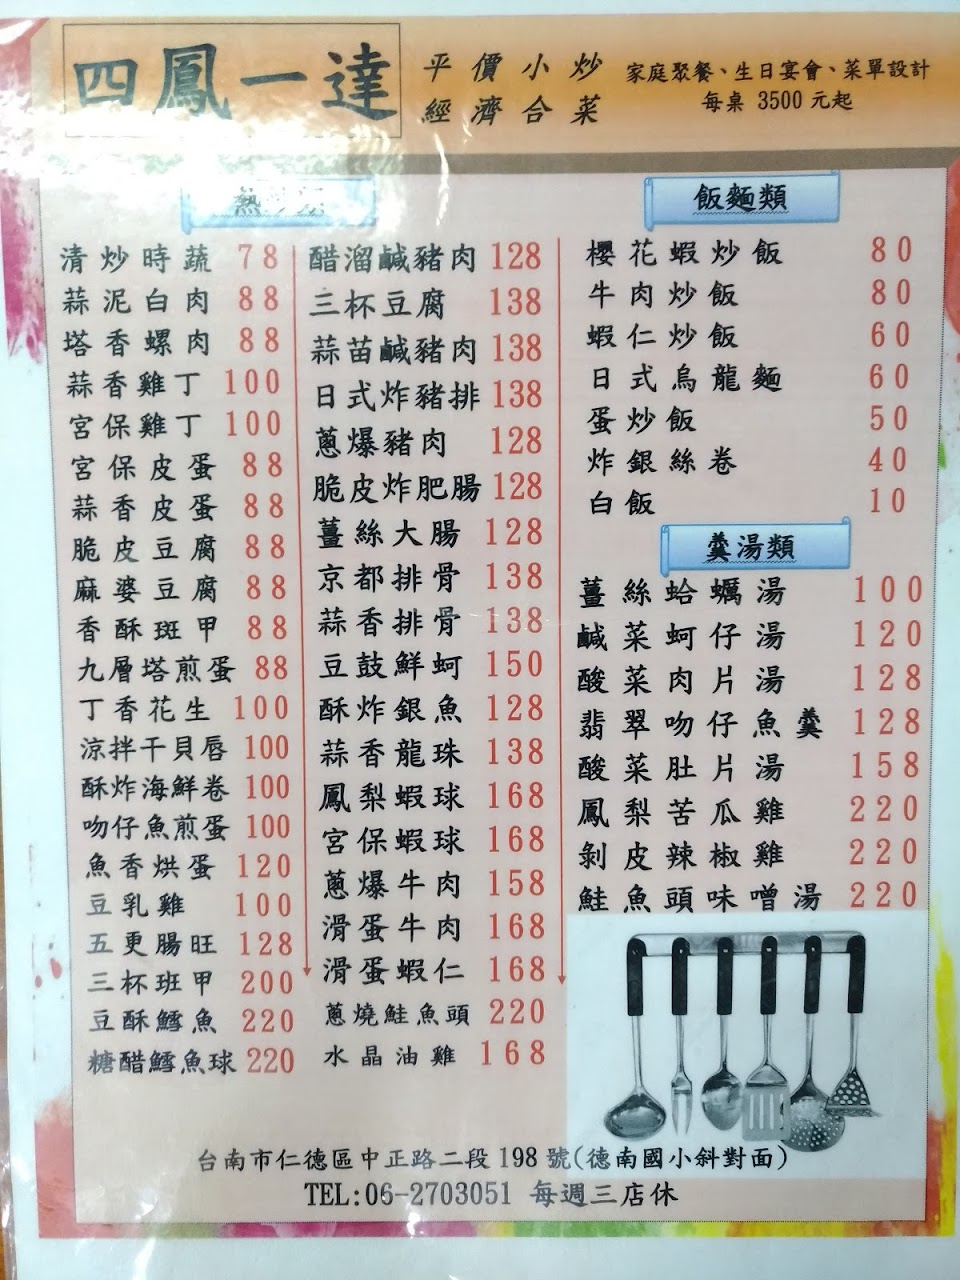 四鳳一達
平價小炒
經濟合菜
家庭聚餐、生日宴會、菜單設計
每桌 3500 元起
熱炒類
清炒時蔬 78
蒜泥白肉 88
塔香螺肉 88
蒜香雞丁 100
宮保雞丁 100
宮保皮蛋 88
蒜香皮蛋 88
脆皮豆腐 88
麻婆豆腐 88
香酥斑甲 88
九層塔煎蛋 88
丁香花生 100
涼拌干貝唇 100
酥炸海鮮卷 100
吻仔魚煎蛋 100
魚香烘蛋 120
豆乳雞 100
五更腸旺 128
三杯班甲 200
豆酥鱈魚 220
糖醋鱈魚球 220
醋溜鹹豬肉 128
三杯豆腐 138
蒜苗鹹豬肉 138
日式炸豬排 138
蔥爆豬肉 128
脆皮炸肥腸 128
薑絲大腸 128
京都排骨 138
蒜香排骨 138
豆鼓鮮蚵 150
酥炸銀魚 128
蒜香龍珠 138
鳳梨蝦球 168
宮保蝦球 168
蔥爆牛肉 158
滑蛋牛肉 168
滑蛋蝦仁 168
蔥燒鮭魚頭 220
水晶油雞 168
飯麵類
櫻花蝦炒飯 80
牛肉炒飯 80
蝦仁炒飯 60
日式烏龍麵 60
蛋炒飯 50
炸銀絲卷 40
白飯 10
羹湯類
薑絲蛤蠣湯 100
鹹菜蚵仔湯 120
酸菜肉片湯 128
翡翠吻仔魚羹 128
酸菜肚片湯 158
鳳梨苦瓜雞 220
剝皮辣椒雞 220
鮭魚頭味噌湯 220
台南市仁德區中正路二段 198 號(德南國小斜對面)
TEL:06-2703051 每週三店休